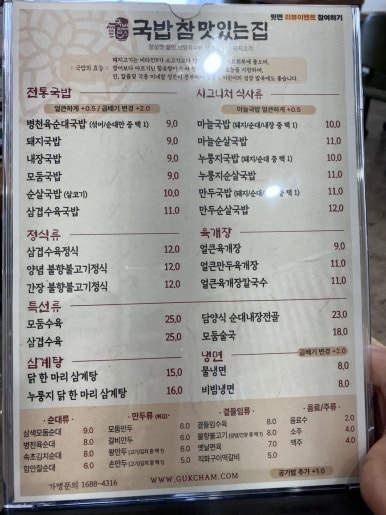 뒷면 리뷰이벤트 참여하기
국밥 참 맛있는 집
전통국밥
얼큰하게 +0.5 / 곱배기 변경 +2.0
병천육순대국밥 (섞어/순대만 중 택 1) 9.0
돼지국밥 9.0
내장국밥 9.0
모듬국밥 9.0
순살국밥 (살코기) 10.0
삼겹수육국밥 11.0
시그니처 식사류
마늘국밥 얼큰하게 +0.5
마늘국밥 (돼지/순대/내장 중 택 1) 10.0
마늘순살국밥 11.0
누룽지국밥 (돼지/순대/내장 중 택 1) 10.0
누룽지순살국밥 11.0
만두국밥 (돼지/순대/내장 중 택 1) 11.0
만두순살국밥 12.0
정식류
삼겹수육정식 12.0
양념 불향불고기정식 12.0
간장 불향불고기정식 12.0
육개장
얼큰육개장 9.0
얼큰만두육개장 11.0
얼큰육개장칼국수 11.0
특선류
모둠수육 25.0
삼겹수육 25.0
담양식 순대내장전골 23.0
모둠술국 18.0
삼계탕
닭 한 마리 삼계탕 15.0
누룽지 닭 한 마리 삼계탕 16.0
냉면
곱배기 변경 +2.0
물냉면 8.0
비빔냉면 8.0
순대류
삼색모둠순대 9.0
병천육순대 8.0
속초김치순대 8.0
항안찰순대 6.0
만두류 (튀김)
모둠만두 6.0
갈비만두 6.0
왕만두 (고기/김치 중 택 1) 6.0
손만두 (고기/김치 중 택 1) 5.0
곁들임류
곁들임수육
불향불고기
옛날편육
직화구이떡갈비 5.0
음료/주류
음료수 2.0
소주 4.0
맥주 4.0
공기밥 추가 +1.0
가맹문의 1688-4316
WWW.GUKCHAM.COM